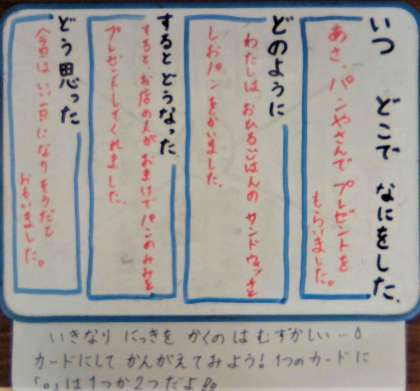 いつ どこで なにをした
あさ、パンやさんで プレゼントを
もらいました。
どのように
わたしは おひるごはんの サンドウィッチと
しおパンをかいました。
するとどうなった
すると、お店の人が おまけで パンのみみを、
プレゼントしてくれました。
どう思った
今日は いい一日になりそうだと
おもいました。
いきなり にっきを かくのは むずかしい…
カードにして かんがえてみよう! 1つのカードに
「。」は 1つか2つだよ